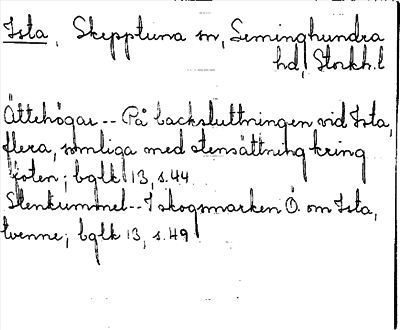 Ista, Skepptuna sn, Seminghundra
hd, Stockh. l
Ättehögar -- På backsluttningen vid Ista,
flera, somliga med stensättning kring
foten; bglk 13, s. 44
Stenkummel -- I skogsmarken Ö. om Ista,
tvenne; bglk 13, s. 49